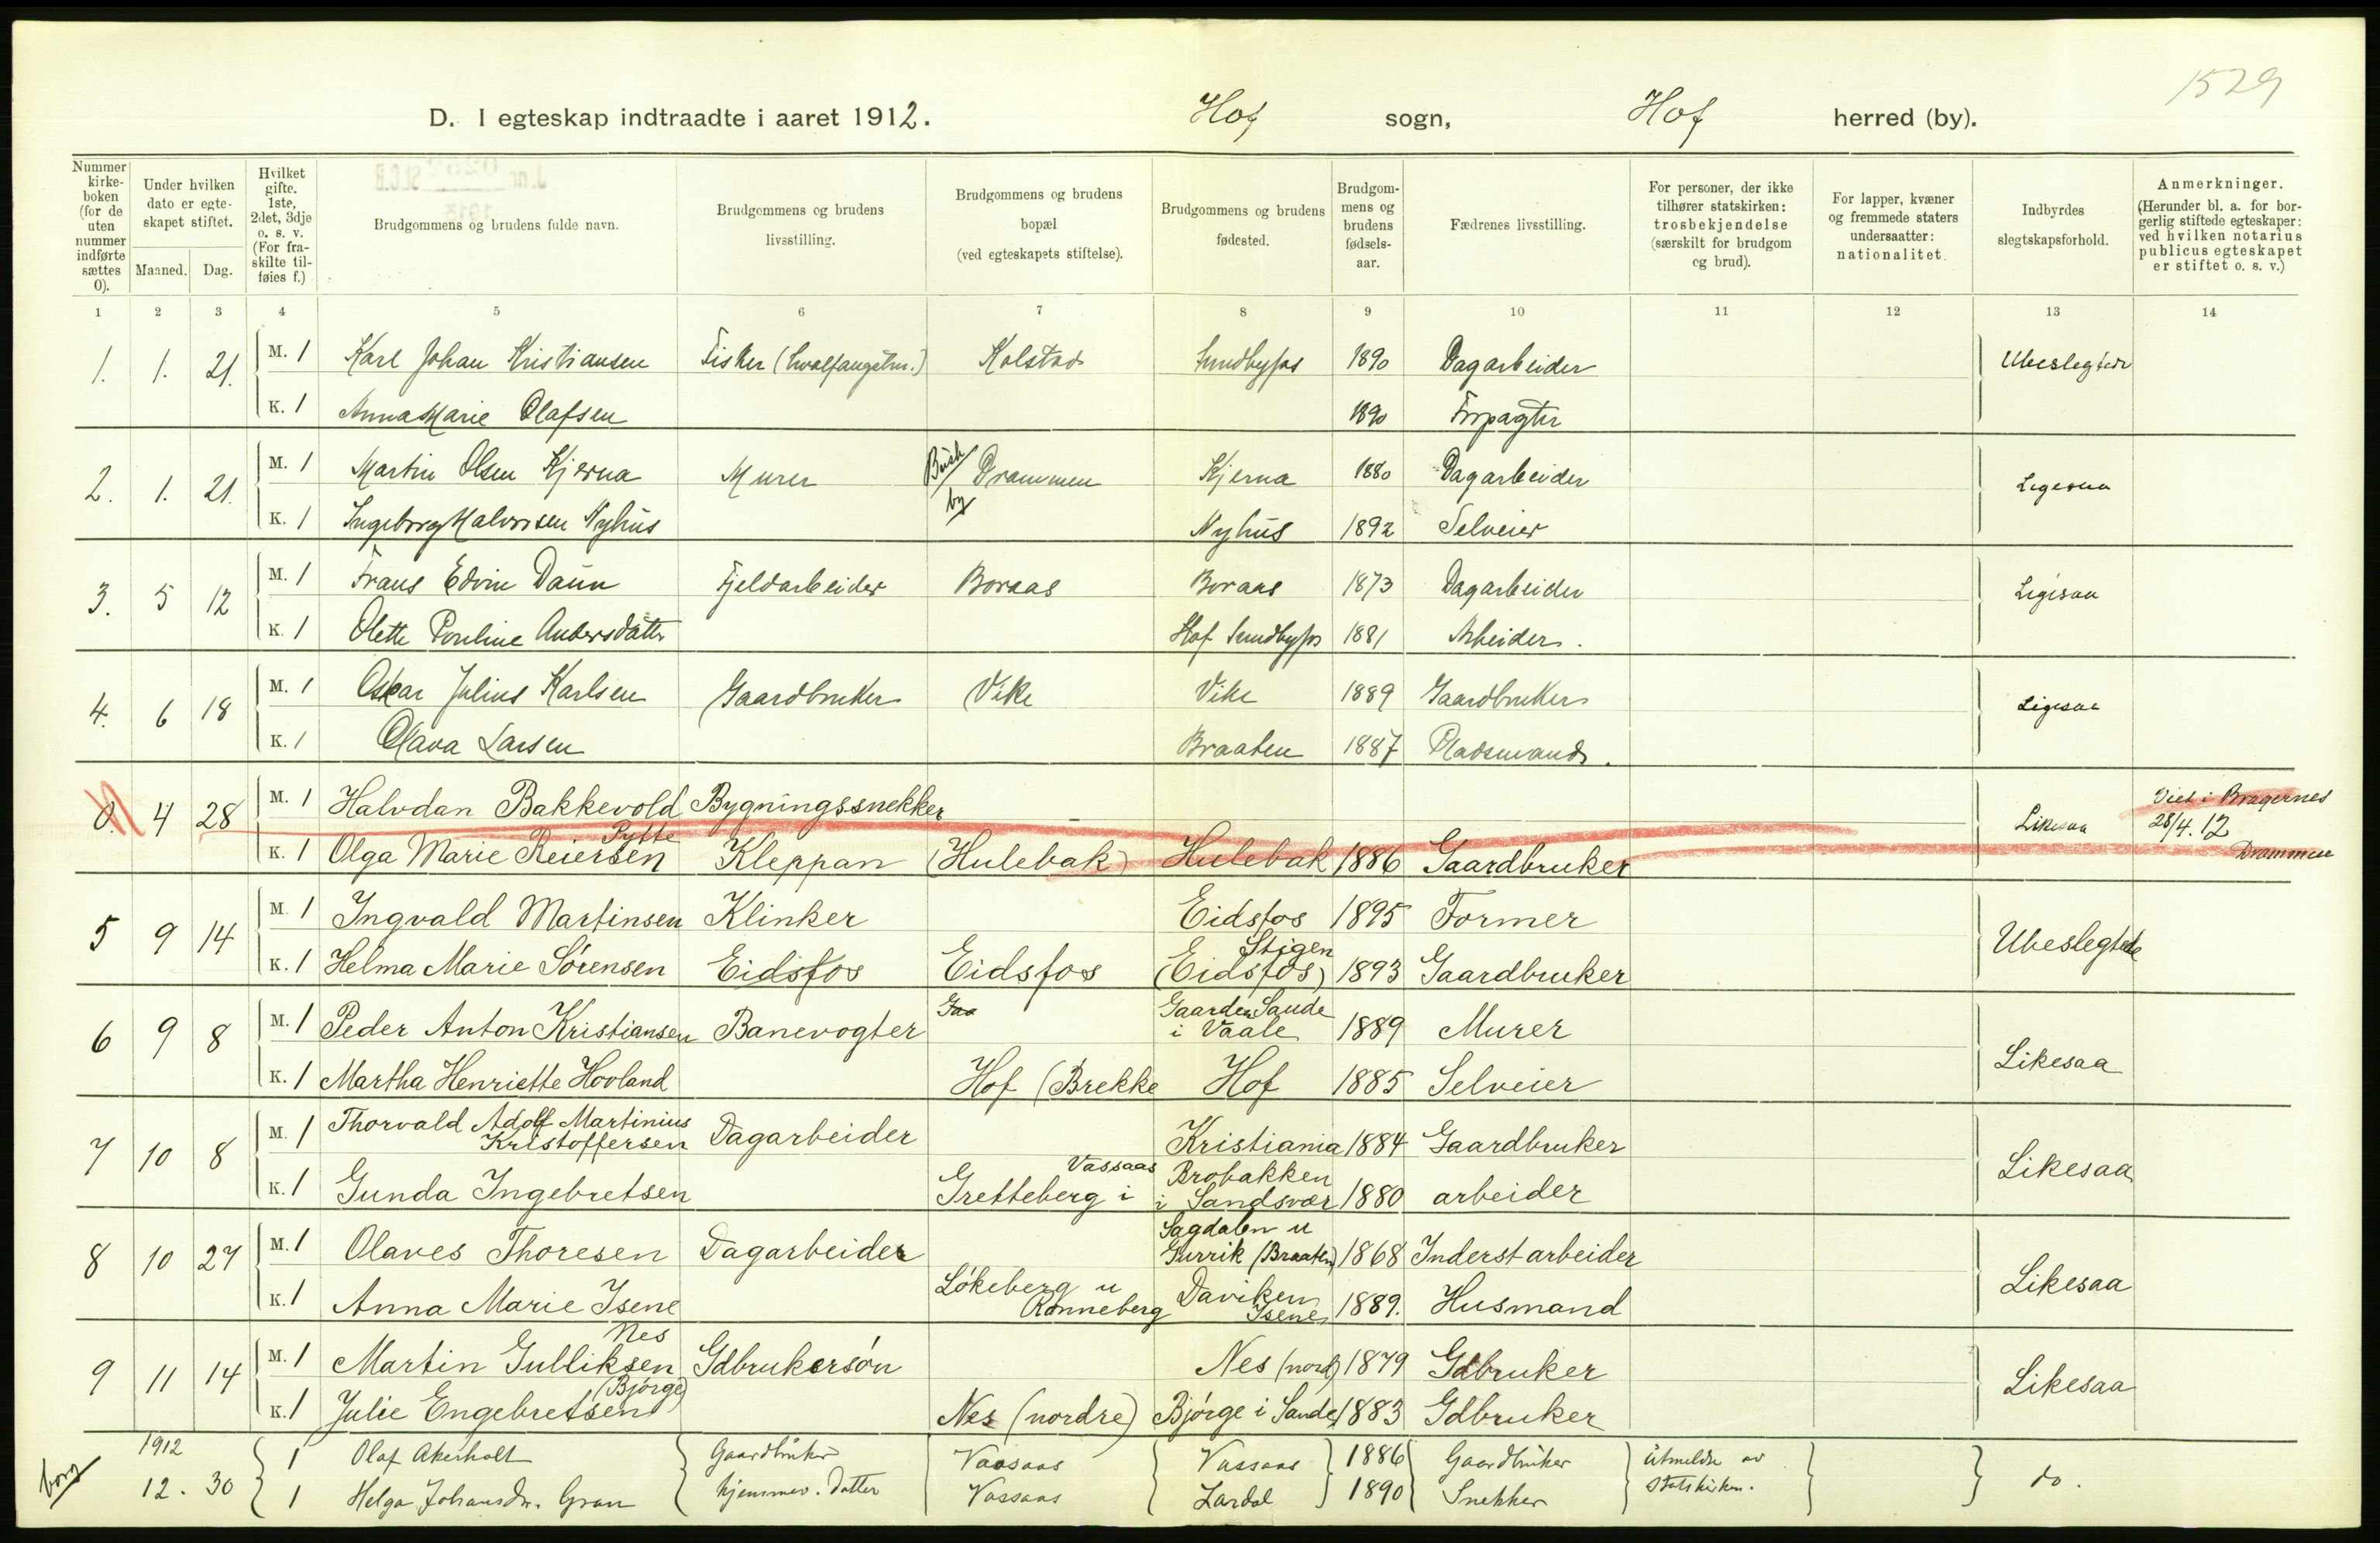 1529
D. I egteskap indtraadte i aaret 1912. Hof sogn, Hof herred (by).
Nummer kirke-boken (for de uten nummer indførte sættes 0).
Under hvilken dato er egte-skapet stiftet.
Maaned. Dag.
Hvilket gifte. 1ste, 2det, 3dje o. s. v. (For fra-skilte til-føies f.)
Brudgommens og brudens fulde navn.
Brudgommens og brudens livsstilling.
Brudgommens og brudens bopæl (ved egteskapets stiftelse).
Brudgommens og brudens fødested.
Brudgom-mens og brudens fødsels-aar.
Fædrenes livsstilling.
For personer, der ikke tilhører statskirken: trosbekjendelse (særskilt for brudgom og brud).
For lapper, kvæner og fremmede staters undersaatter: nationalitet.
Indbyrdes slegtskapsforhold.
Anmerkninger. (Herunder bl. a. for bor-gerlig stiftede egteskaper: ved hvilken notarius publicus egteskapet er stiftet o. s. v.)
1 2 3 4 5 6 7 8 9 10 11 12 13 14
1. 1. 21. M. 1 Karl Johan Kristiansen Fisker (hvalfangstm.) Kolstad Sundbyfos 1890 Dagarbeider Ubeslegtede
K. 1 Anna Marie Olafsen 1890 Forpagter
2. 1. 21. M. 1 Martin Olsen Kjerna Murer Busk by Drammen Kjerna 1880 Dagarbeider Ligesaa
K. 1 Ingeborg Halvorsen Nyhus Nyhus 1892 Selveier
3. 5 12 M. 1 Frans Edvin Daun Fjeldarbeider Boraas Boraas 1873 Dagarbeider Ligesaa
K. 1 Olette Pouline Andersdatter Hof Sundbyfos 1881 Arbeider.
4. 6 18 M. 1 Oskar Julius Karlsen Gaardbruker Vike Vike 1889 Gaardbruker Ligesaa
K. 1 Olava Larsen Braaten 1887 Pladsmand.
0. 4 28 M. 1 Halvdan Bakkevold Bygningssnekker Likesaa Viet i Bragernes 28/4. 12 Drammen
K. 1 Olga Marie Reiersen Pytte Kleppan (Hulebak) Hulebak 1886 Gaardbruker
5 9 14 M. 1 Ingvald Martinsen Klinker Eidsfos 1895 Former Ubeslegtede
K. 1 Helma Marie Sørensen Eidsfos Eidsfos Stigen (Eidsfos) 1893 Gaardbruker
6 9 8 M. 1 Peder Anton Kristiansen Banevogter Gaa Gaarden Saude i Vaale 1889 Murer Likesaa
K. 1 Martha Henriette Hovland Hof (Brekke Hof 1885 Selveier
7 10 8 M. 1 Thorvald Adolf Martinius Kristoffersen Dagarbeider Kristiania 1884 Gaardbruker Likesaa
K. 1 Gunda Ingebretsen Gretteberg i Vassaas Brobakken i Sandsvær 1880 arbeider
8 10 27 M. 1 Olaves Thoresen Dagarbeider Sagdalen u Gurrik (Braaten) 1868 Inderst arbeider Likesaa
K. 1 Anna Marie Isene Løkeberg u Rønneberg Daviken Isene 1889. Husmand
9 11 14 M. 1 Martin Gulliksen Nes Gdbrukersøn Nes (nord) 1879 Gdbruker Likesaa
K. 1 Julie Engebretsen (Bjørge) Nes (nordre) Bjørge i Sande 1883 Gdbruker
borg 1912 12. 30 1 Olaf Akerholt Gaardbruker Vassaas Vassaas 1886 Gaardbruker utmeldte av statskirken. do.
1 Helga Johansdr. Gran hjemmev. Datter Vassaas Lardal 1890 Snekker